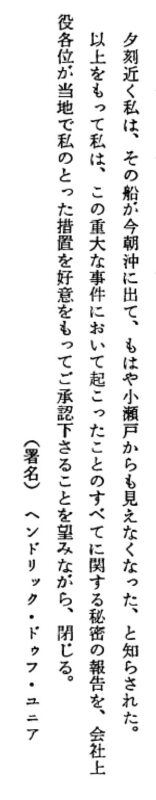 夕刻近く私は、その船が今朝沖に出て、もはや小瀬戸からも見えなくなった、と知らされた。
以上をもって私は、この重大な事件において起こったことのすべてに関する秘密の報告を、会社上
役各位が当地で私のとった措置を好意をもってご承認下さることを望みながら、閉じる。
（署名）　ヘンドリック・ドゥフ・ユニア